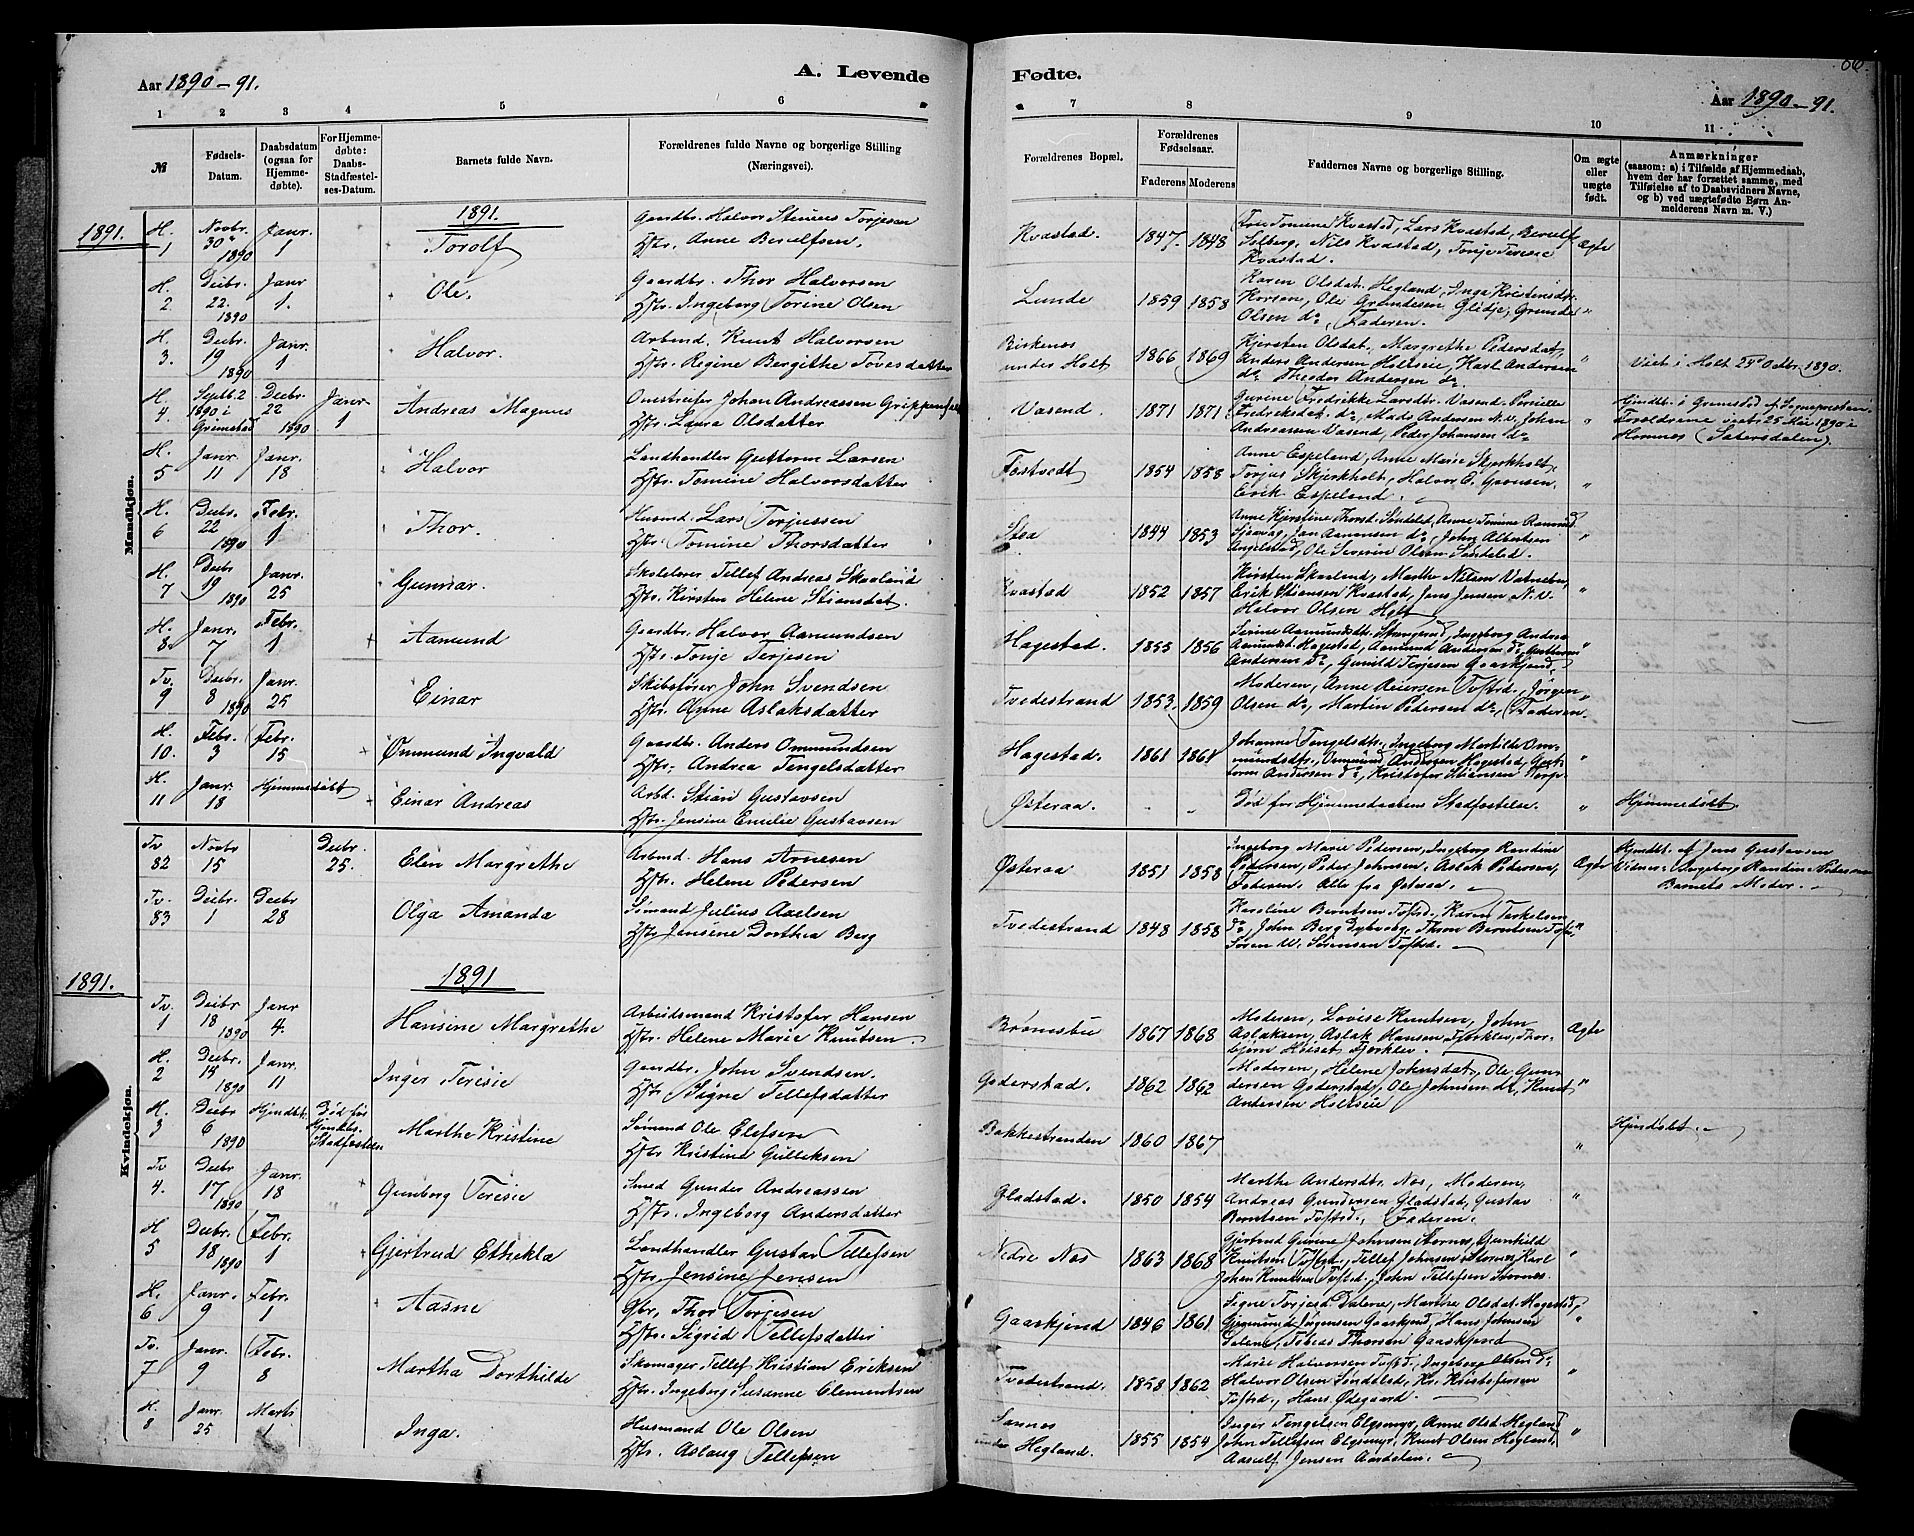 Aar 1890-91.
A. Levende
Fødte.
Aar 1890-91.
1 2 3 4 5 6
7 8 9 10 11
№
Fødsels-Datum.
Daabsdatum (ogsaa for Hjemmedøbte).
For Hjemmedøbte: Daabs-Stadfæstelses-Datum.
Barnets fulde Navn.
Forældrenes fulde Navne og borgerlige Stilling (Næringsvei).
Forældrenes Bopæl.
Forældrenes Fødselsaar.
Faderens Moderens
Faddernes Navne og borgerlige Stilling.
Om ægte eller uægte født.
Anmærkninger (saasom: a) i Tilfælde af Hjemmedaab, hvem der har forrettet samme, med Tilføielse af to Daabsvidners Navne, og b) ved uægtefødte Børn Anmelderens Navn m. V.)
Mandkjøn.
1891.
1891.
H. 1 Novbr. 30 1890 Janr. 1 Torolf Gaardbr. Halvor Torjesen Hstr. Anne Berulfsen. Kvastad. 1847. 1848 Tomine Kvastad, Lars Kvastad, Berulf Solberg, Nils Kvastad, Tonje Teresie Kvastad. Ægte
H. 2 Decbr. 22. 1890 Janr 1. Ole. Gaardbr. Thor Halvorsen Hstr. Ingeborg Torine Olsen Lunde 1859 1858 Karen Olsdat. Hegland, Inga Kristensdtr. Olsen do, Faderen. "
H. 3. Decbr. 19 1890 Janr. 1 Halvor. Arbmd. Knut Halvorsen Hstr. Regine Bergithe Tovesdatter Birkenes under Holt 1866 1869 Kjersten Olsdat., Margrethe Pedersdat, Anders Andersen Holtseie, Karl Andersen do Theodor Andersen do. " Viet i Holt Octbr. 1890.
H. 4 Septb. 2 1890 i Grimstad Decbr. 22 1890 Janr. 1 Andreas Magnus Omstreifer Johan Andreassen Hstr. Laura Olsdatter Vasend. 1871 1871 Gurine Fredrikke Larsdtr. Vasend. Fredriksdat. do, Mads Andersen, Johan Andreassen Vasend, Peder Johansen do " Hjmdbt. i Grimstad af Sognepresten. Forældrene viet 25 Mai 1890 i Hornnes (Sætersdalen).
H. 5 Janr. 11 Janr. 18 Halvor Landhandler Guttorm Larsen Hstr. Tomine Halvorsdatter Fostvedt 1854 1858 Anne Espeland, Anne Marie Skjerkholt, Torjus Skjerkholt, Halvor E. Erik Espeland. "
H. 6 Decbr. 22 1890 Febr. 1 Thor. Husmd. Lars Torjussen Hstr. Tomine Thorsdatter Staa 1844 1853 Anne Kjerstine Thorsd. Søndeled, Anne Tomine Jan Aanonsen do, John Albertsen Angelstad, Ole Severin Olsen Søndeled. "
H. 7 Decbr 19 1890 Janr. 25 Gunnar. Skolelærer Tellef Andreas Skaaland Hstr. Kirsten Helene Stiansdat. Kvastad 1852 1857 Kirsten Skaaland, Marthe Nilsen Vatnebu, Erik Stiansen Kvastad, Jens Jensen N.V. Halvor Olsen Holt "
H. 8 Janr. 7 Febr. 1 Aamund Gaardbr. Halvor Aamundsen Hstr. Tonje Terjesen Hagestad. 1855 1856 Serine Aamundsdtr. Ingeborg Andrea Aamundst. Hagestad, Aamund Andersen do, Guttorm Andersen do, Gunild Terjesen Gaaskjend. "
Tv. 9 Decbr. 8 1890 Janr. 25 Einar Skibsfører John Svendsen Hstr. Anne Aslaksdatter Tvedestrand 1853. 1859 Moderen, Anne Reiersen Tvestrd., Jørgen Olsen do, Martin Pedersen do, Faderen. "
H. 10. Febr. 3 Febr. 15 Ommund Ingvald Gaardbr. Anders Ommundsen Hstr. Andrea Tengelsdatter Hagestad. 1861 1861 Johanne Tengelsdtr., Ingeborg Martilde Ommundsdtr., Ommund Andersen Hagestad, Guttorm Andersen do, Kristofer Stiansen "
H. 11 Janr. 18 Hjemmedøbt Einar Andreas Arbd. Stian Gustavsen Hstr. Jensine Emilie Gustavsen Østeraa. " " Død før Hjemmedaabens Stadfestelse. " Hjemmedøbt.
Tv 82 Novbr 15 Decbr. 25. Elen Margrethe Arbmd. Hans Arnesen Hstr. Helene Pedersen Østeraa 1851 1858 Ingeborg Marie Pedersen, Ingeborg Randine Pedersen, Peder Johnsen, Aslak Pedersen, Faderen. Alle fra Østeraa. Ægte Hjmdbt. af Jens Gustavsen Vidner: Ingeborg Randine Pedersen Barnets Moder.
Tv. 83 Decbr. 1 Decbr 28 Olga Amanda Sømand Julius Axelsen Hstr Jensine Dorthea Berg Tvedestrand 1848 1858 Karoline Berntsen Tvstrd., Karen Terkelsen do, John Berg Dybvaag, Thron Berntsen Søren W. Sørensen Tvstrd. "
Kvindekjøn.
1891.
1891
Tv. 1 Decbr 18 1890 Janr 4. Hansine Margrethe Arbeidsmand Kristofer Hansen Hstr. Helene Marie Knutsen Brømsbu 1867 1868 Moderen, Lovise Knutsen, John Aslaksen, Aslak Hansen Fjorklev, Thorbjørn Hoiset Fjorklev. Ægte
H. 2 Decbr. 15 1890 Janr. 11 Inger Teresie Gaardbr. John Svendsen. Hstr. Signe Tellefsdatter Goderstad. 1862 1862 Moderen, Helene Johnsdat., Ole Gundersen Goderstad, Ole Johnsen do, Knut Andersen Holtseie "
H. 3 Decbr. 6 1890 Hjmdbt. Død før Hjmdbs. Stadfestelse Marthe Kristine Sømand Ole Olefsen Hstr Kristine Gulleksen Bakkestranden 1860 1867 " Hjmdøbt.
Tv 4. Decbr 17 1890 Janr. 18 Gunborg Teresie Smed Gunder Andreassen Hstr. Ingeborg Andersdatter Gladstad. 1850 1854 Marthe Andersdtr. Næs, Moderen, Andreas Gundersen Gladstad, Gustav Berntsen Tvstrd., Faderen. "
H. 5 Decbr. 18 1890 Febr. 1 Gjertrud Ethekla Landhandler Gustav Tellefsen Hstr. Jensine Jensen Nedre Næs 1863 1868 Gjertrud Gurine Johnsen Stornes, Gunhild Knutsen Tvstrd., Tellef Johnsen Stornes, Karl Johan Knutsen Tvstrd., John Tellefsen Stornes. "
H. 6 Janr. 9 Febr. 1 Aasne Gbr. Thor Torjesen Hstr. Sigrid Tellefsdatter Gaaskjend 1846 1861 Signe Torjesd. Dalene, Marthe Olsdat. Hagestad, Gjermund Jørgensen Gaaskjend, Hans Johnsen Dalene, Tobias Thorsen Gaaskjend "
Tv. 7 Janr. 9 Febr. 8 Martha Dorthilde Skomager Tellef Kristian Eriksen Hstr. Ingeborg Susanne Clementsen Tvedestrand. 1858 1862 Marie Halvorsen Tvstrd., Ingeborg Olsen do Halvor Olsen Søndeled, Kr. Kristofersen Tvstrd., Hans Ødegaard. "
H. 8 Janr. 25 Marts 1 Inga. Husmand Ole Olsen Hstr. Aslaug Tellefsen Sannes under Hegland. 1855 1854 Inger Tengelsen Elgsmyr, Anne Olsd. Hegland John Tellefsen Elgsmyr, Knut Olsen Hegland, Aasulf Jensen Aardalen. "